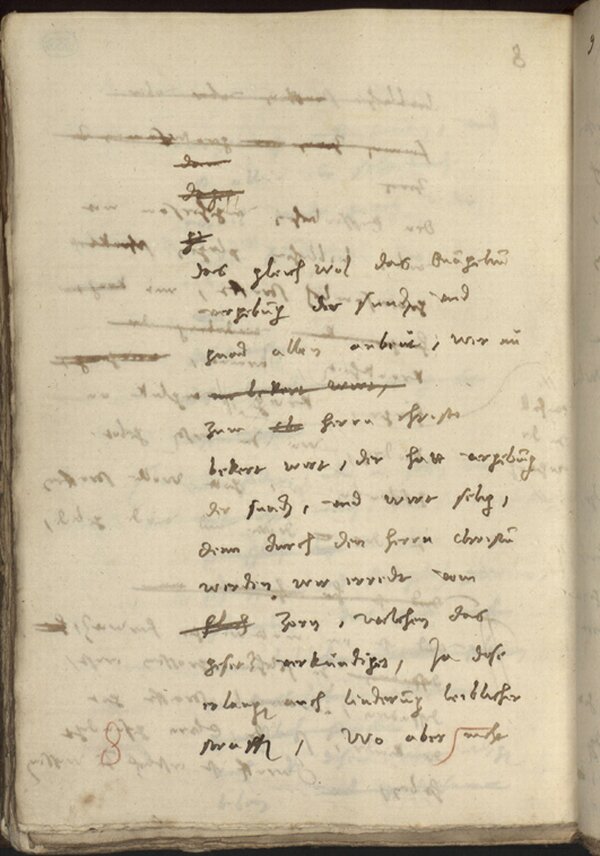 8
das gleich wol das Euangeliu
vergebung der sunden und
gnad allen anbeut, wer nu
bekert wirt,
zum herrn christo
bekert wirt, der hatt vergebung
der sunden, und wirt selig,
denn durch den herrn Christum
werden wir erredt vom
zorn, welchen das
gesetz verkündiget, Ja dise
erlangen auch linderung leiblicher
straffen, Wo aber nicht
8